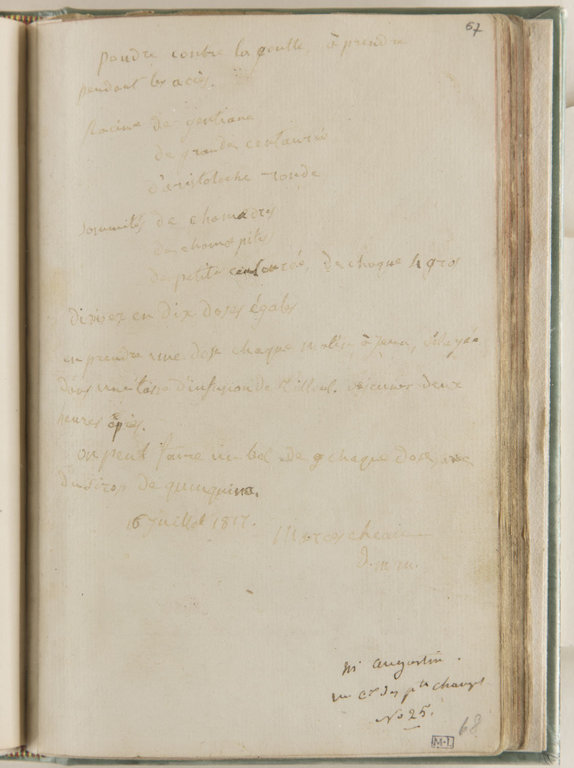 67
poudre contre la goutte, à prendre
pendant les accès.
Racine de gentiane
de grande centaurée
d'aristoloche ronde
sommités de chamædres
de chamæpitis
de petite centaurée, de chaque 4 gros
divisez en dix doses égales
en prendre une dose chaque matin à jeun, délayée
dans une tasse d'infusion de tilleul. déjeuner deux
heures après.
on peut faire un bol de chaque dose avec
du sirop de quinquina.
6 juillet 1817.
D. m. m.
Mr Augustin.
rue Cx des pts champs
No 25.
68
M-L